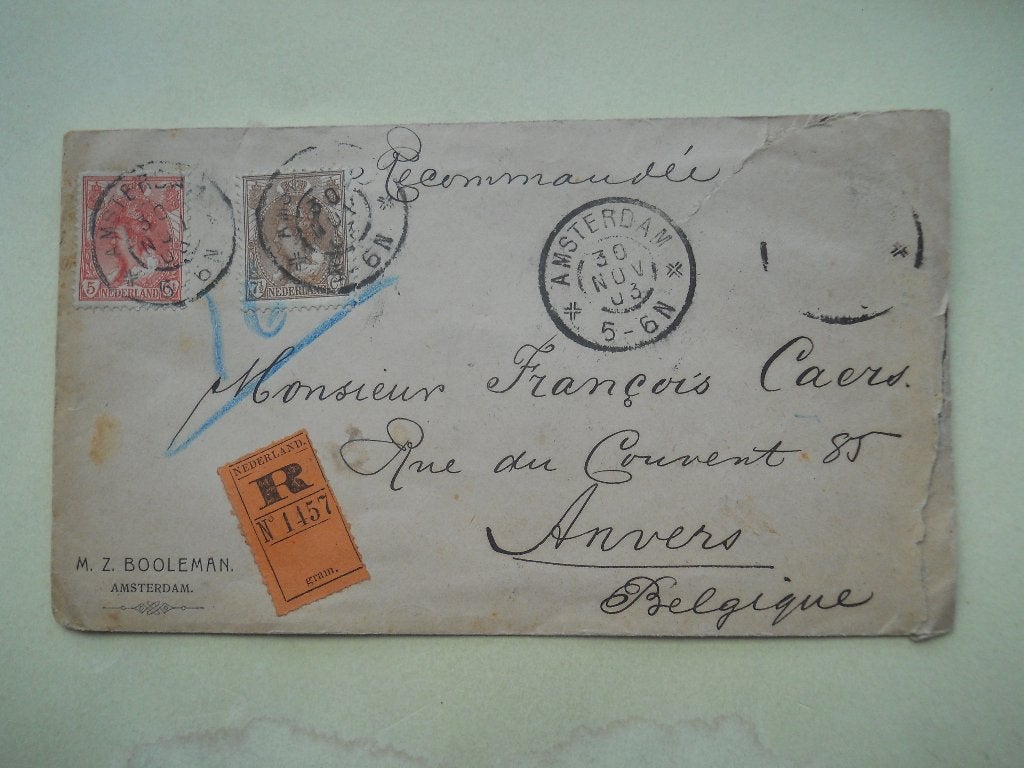 Recommandée
AMSTERDAM
30
NOV
5
NEDERLAND
7½
NEDERLAND
6N
6N
AMSTERDAM
30
NOV
03
5-6N
Monsieur François Caers.
Rue du Couvent 85
Anvers
Belgique
NEDERLAND.
R
No 1457
gram.
M. Z. BOOLEMAN.
AMSTERDAM.